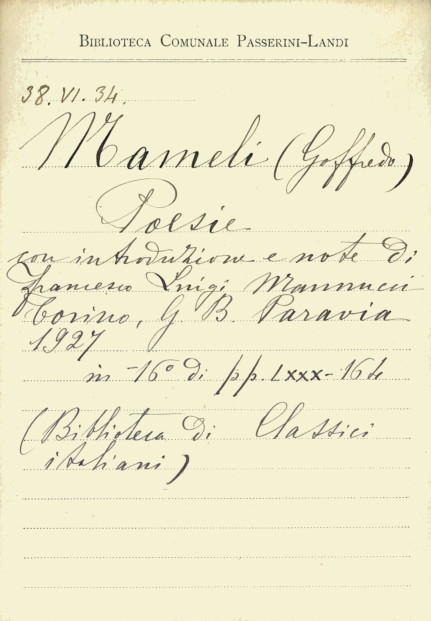 BIBLIOTECA COMUNALE PASSERINI-LANDI
38.VI.34.
Mameli (Goffredo)
Poesie
con introduzione e note di
Francesco Luigi Mannucci
Torino, G B. Paravia
1927
in-16° di pp. LXXX-164
(Biblioteca di Classici
italiani)